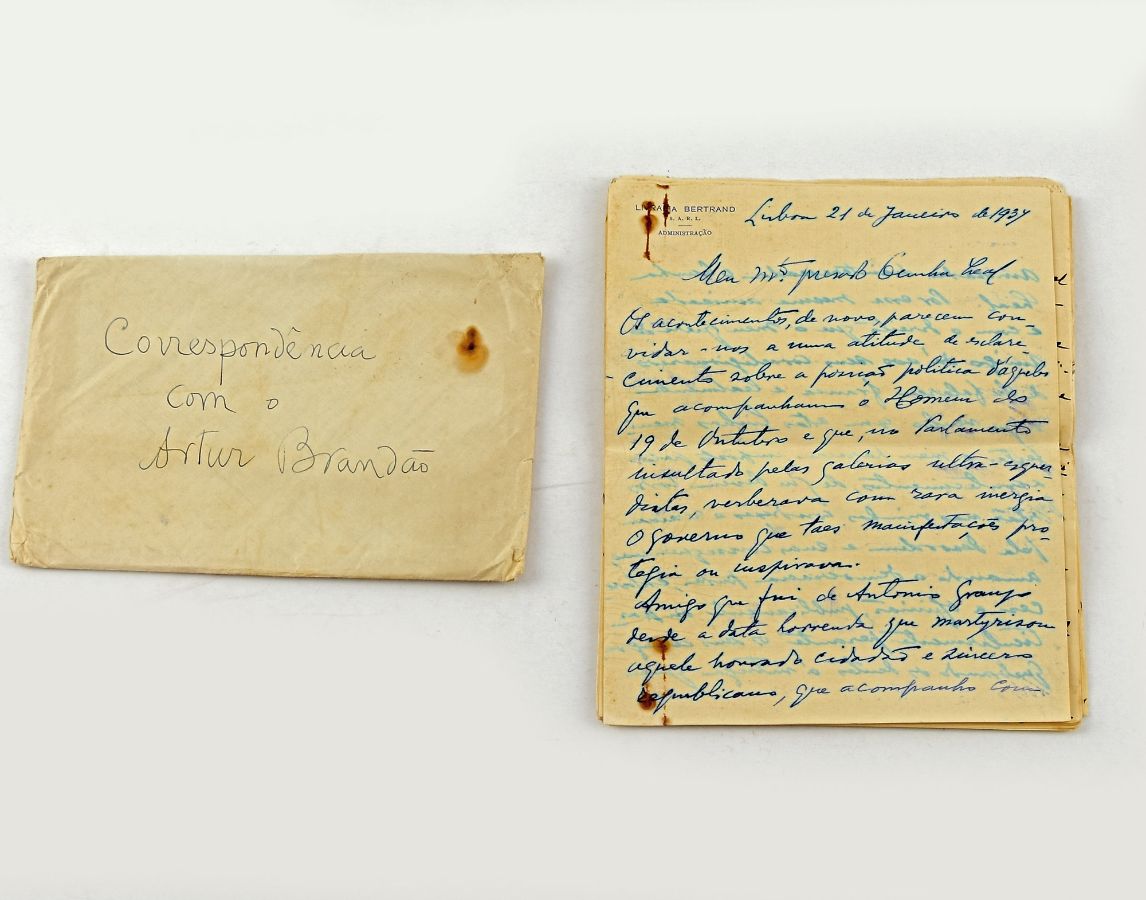 Correspondência
com o
Artur Brandão
LIVRARIA BERTRAND
S. A. R. L.
ADMINISTRAÇÃO
Lisboa 21 de Janeiro de 1937
Meu mto presado Cunha Leal
Os acontecimentos, de novo, parecem con-
vidar-nos a uma atitude de esclare-
cimento sobre a posição politica d'aqueles
que acompanham o Homem do
19 de Outubro e que, no Parlamento
insultado pelas galerias ultra-esquer-
distas, verberava com rara inergia
o governo que taes manifestações pro-
tegia ou inspirava.
Amigo que fui de Antonio Granjo
desde a data horrenda que martyrisou
aquele honrado cidadão e sincero
republicano, que acompanho com